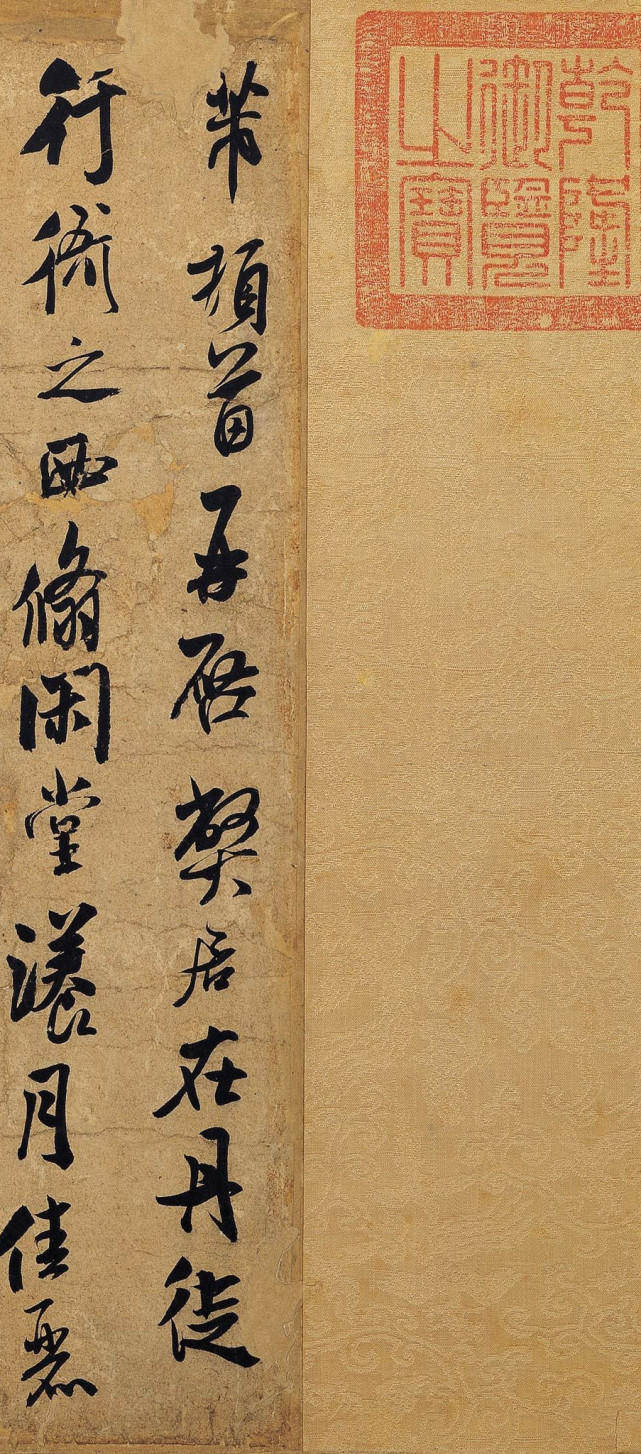 乾隆
御覽
之寶
芾頓首再啓弊居在丹徒
行衙之西翛閑堂漾月佳麗